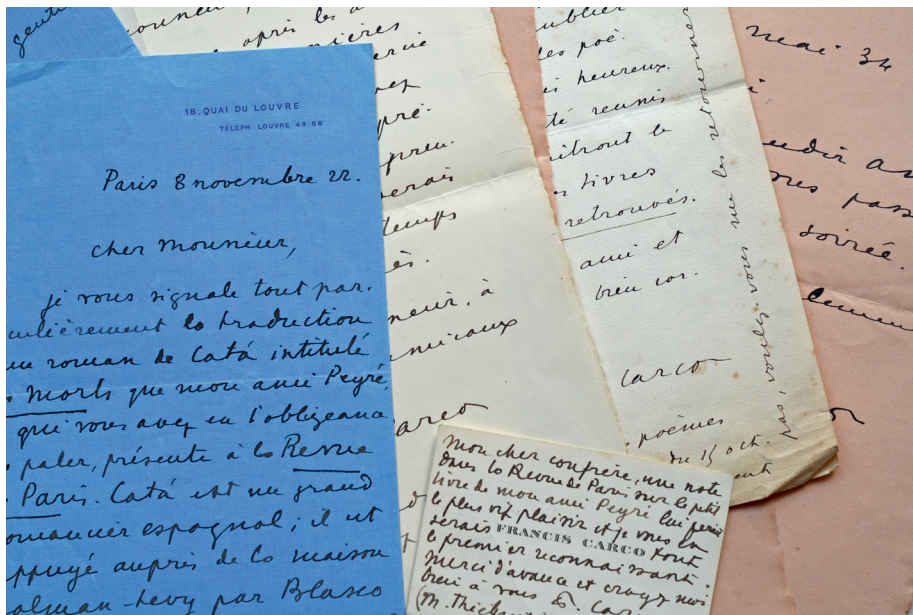 18, QUAI DU LOUVRE
TÉLEPH LOUVRE 49-88
Paris 8 novembre 22.
cher Monsieur,
je vous signale tout par.
culièrement la traduction
un roman de Catá intitulé
Morts que mon ami Peyré,
que vous avez eu l'obligeance
paler, présente à la Revue
Paris. Catá est un grand
omancier espagnol; il est
ppuyé auprès de la maison
alman-Levy par Blasco
après les
temps
neur, à
amicaux
arco
publier
les poé.
heureux.
té reunis
itront le
livres
retrouvés.
ami et
bien cor.
Carco
poèmes
du 15 oct.
pas, voulez-vous me les retourner
mai 34
pass
soirée.
Mon cher confrère, une note
dans la Revue de Paris sur le petit
livre de mon ami Peyré lui ferait
le plus vif plaisir et je vous en
serais FRANCIS CARCO tout
le premier reconnaissant.
Merci d'avance et croyez moi
bien à vous F. Carco